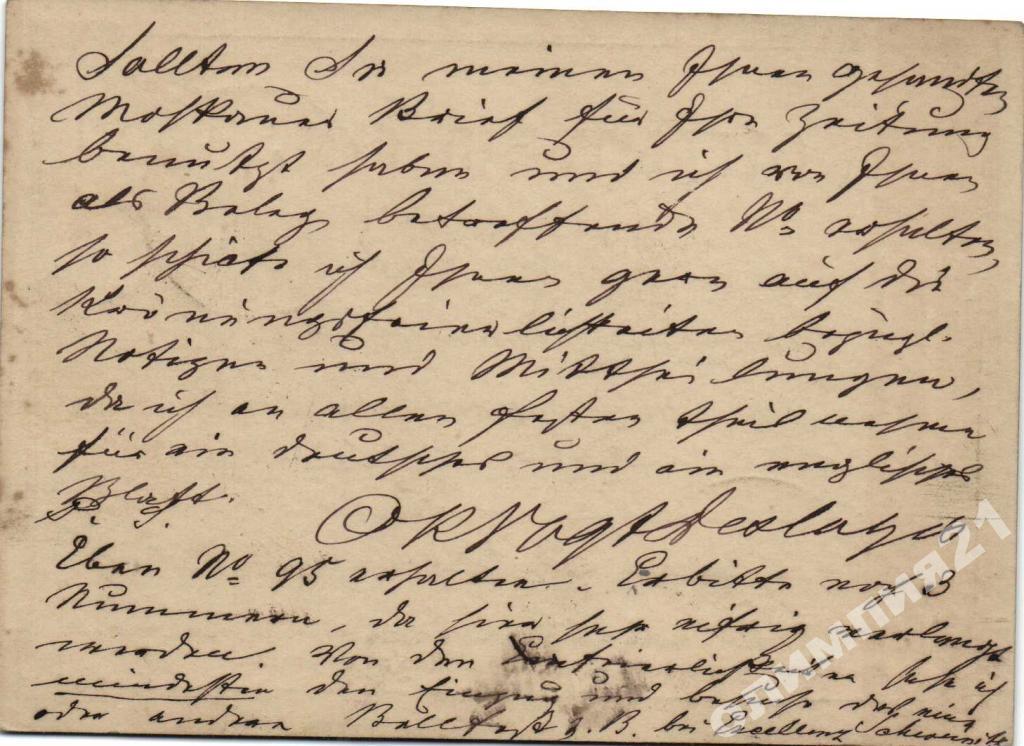 Sollten Sie meinen Ihnen gesandten
Moskauer Brief für Ihre Zeitung
benutzt haben und ich von Ihnen
als Beleg betreffende No erhalten,
so schicke ich Ihnen gern auf die
Krönungsfeierlichkeiten bezügl.
Notizen und Mittheilungen,
da ich an allen Festen theil nehme
für ein deutsches und ein englisches
Blatt.
P. S.
Eben No 95 erhalten. Erbitte noch 3
Nummern, da hier sehr eifrig verlangt
werden. Von den Feierlichkeiten sehe ich
mindestens den Einzug und besuche das eine
oder andere Ballfest z. B. bei Excellenz
олимпия21